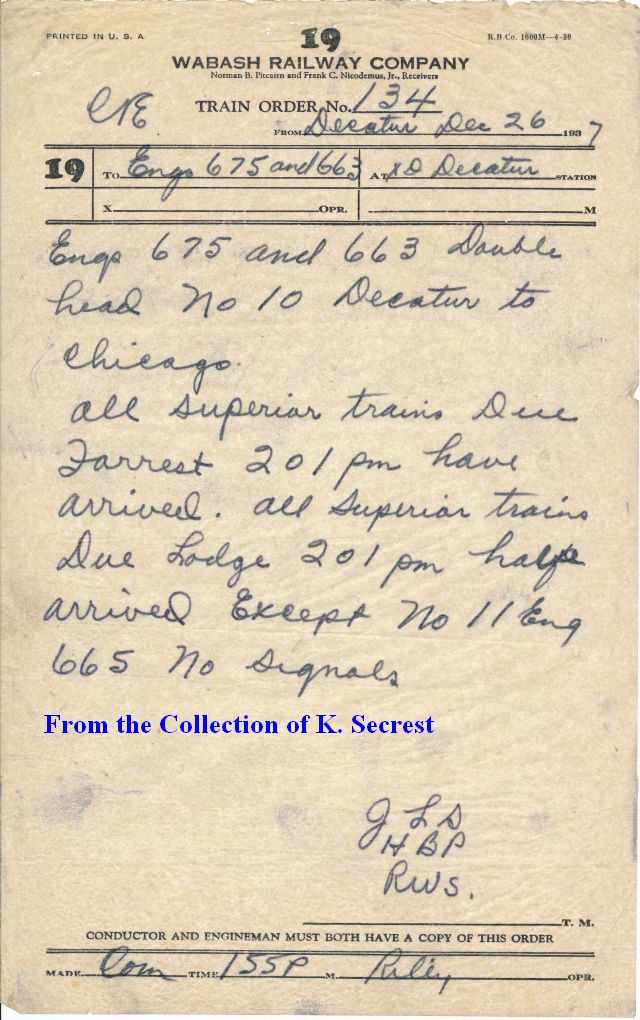 PRINTED IN U. S. A
19
R.B.Co. 1600M—4-36
WABASH RAILWAY COMPANY
Norman B. Pitcairn and Frank C. Nicodemus, Jr., Receivers
TRAIN ORDER No. 134
FROM Decatur Dec 26 1937
19 To Engs 675 and 663 At XD Decatur STATION
X OPR. M
Engs 675 and 663 Double
head No 10 Decatur to
Chicago.
all superior trains Due
Forrest 201 pm have
arrived. all superior trains
Due Lodge 201 pm have
arrived Except No 11 Eng
665 No signals
From the Collection of K. Secrest
J L D
HBP
RWS.
T. M.
CONDUCTOR AND ENGINEMAN MUST BOTH HAVE A COPY OF THIS ORDER
MADE Com TIME 155P M. Riley OPR.